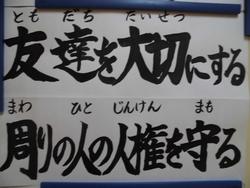 とも だち たいせつ
友達を大切にする
まわ ひと じんけん まも
周りの人の人権を守る